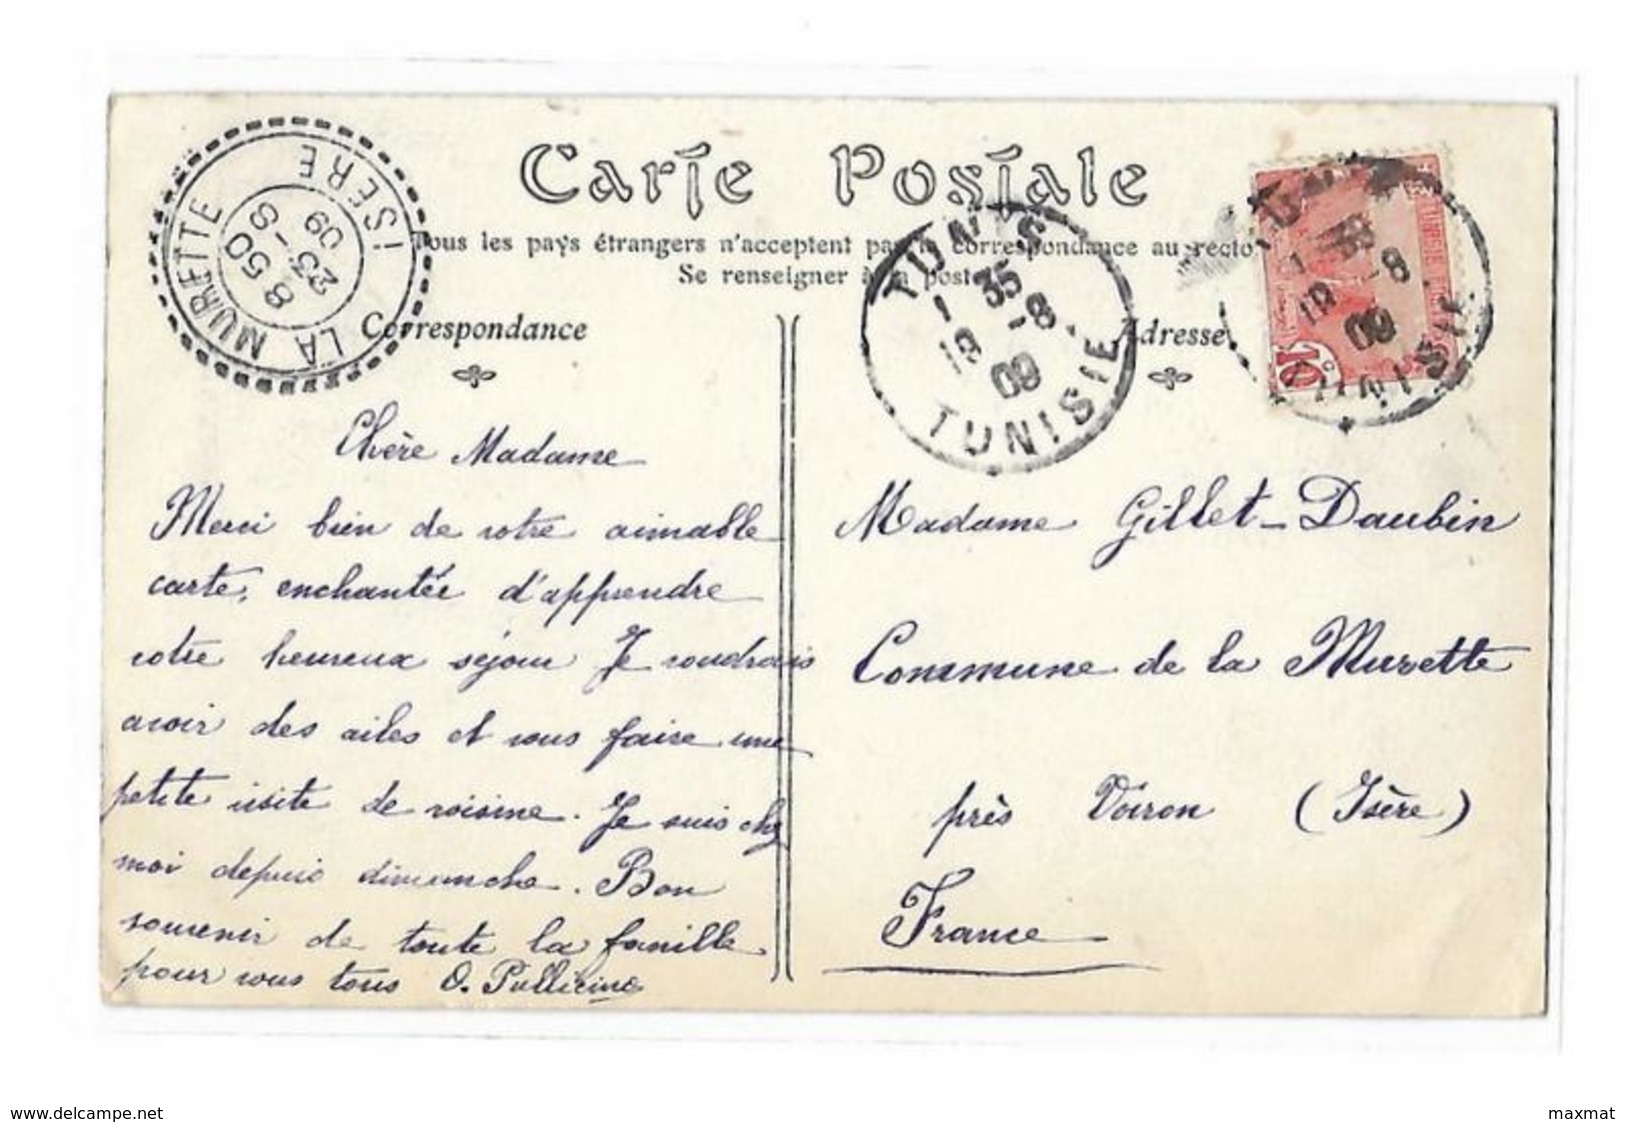 Carte Postale
Tous les pays étrangers n'acceptent pas la correspondance au recto
Se renseigner à la poste
Correspondance
Adresse
LA MURETTE
ISERE
8 50
23-8
09
TUNIS
1 35
19-8
09
TUNISIE
TUNIS
1 35
19-8
09
TUNISIE
10
Chère Madame
Merci bien de votre aimable
carte, enchantée d'apprendre
votre heureux séjour Je voudrais
avoir des ailes et vous faire une
petite visite de voisine. Je suis chez
moi depuis dimanche. Bon
souvenir de toute la famille
pour vous tous O. Pullicino
Madame Gillet-Daubin
Commune de la Murette
près Voiron (Isère)
France
www.delcampe.net
maxmat